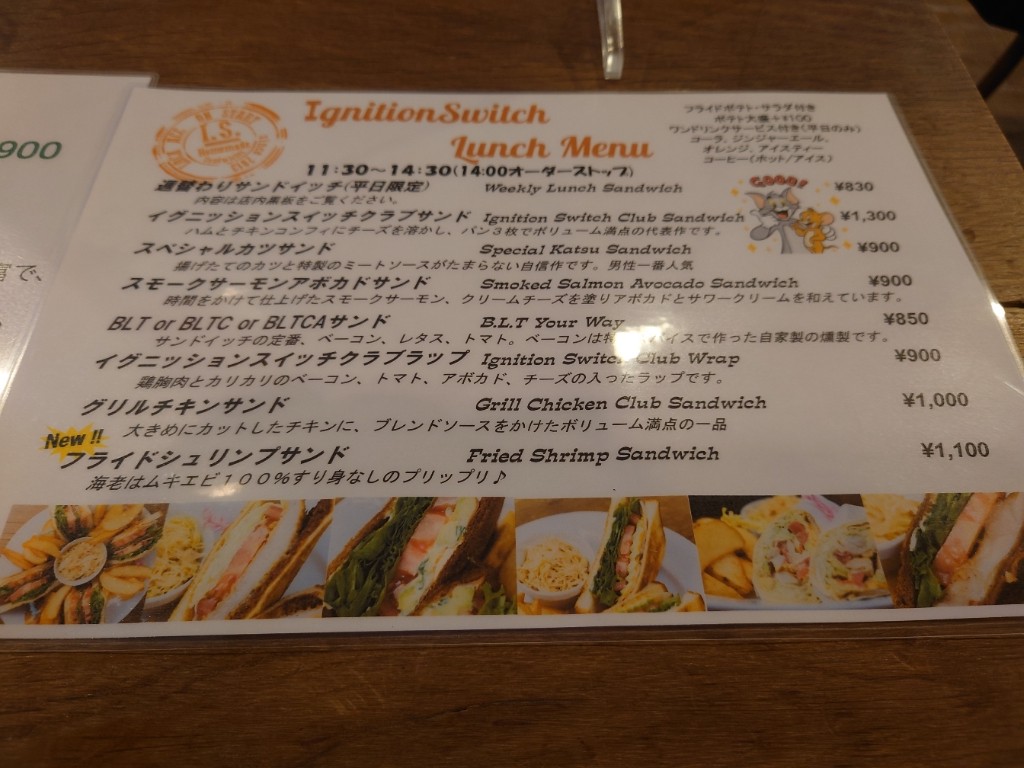 900
IgnitionSwitch
Lunch Menu
I.S.
フライドポテト・サラダ付き
ポテト大盛＋¥100
ワンドリンクサービス付き(平日のみ)
コーラ, ジンジャーエール,
オレンジ, アイスティー
コーヒー(ホット/アイス)
11:30〜14:30(14:00オーダーストップ)
週替わりサンドイッチ(平日限定) Weekly Lunch Sandwich ¥830
内容は店内黒板をご覧ください。
GOOD!
イグニッションスイッチクラブサンド Ignition Switch Club Sandwich ¥1,300
ハムとチキンコンフィにチーズを溶かし、パン３枚でボリューム満点の代表作です。
スペシャルカツサンド Special Katsu Sandwich ¥900
揚げたてのカツと特製のミートソースがたまらない自信作です。男性一番人気
スモークサーモンアボカドサンド Smoked Salmon Avocado Sandwich ¥900
時間をかけて仕上げたスモークサーモン、クリームチーズを塗りアボカドとサワークリームを和えています。
BLT or BLTC or BLTCAサンド B.L.T Your Way ¥850
サンドイッチの定番、ベーコン、レタス、トマト。ベーコンは特パイスで作った自家製の燻製です。
イグニッションスイッチクラブラップ Ignition Switch Club Wrap ¥900
鶏胸肉とカリカリのベーコン、トマト、アボカド、チーズの入ったラップです。
グリルチキンサンド Grill Chicken Club Sandwich ¥1,000
大きめにカットしたチキンに、ブレンドソースをかけたボリューム満点の一品
New !!
フライドシュリンプサンド Fried Shrimp Sandwich ¥1,100
海老はムキエビ１００％すり身なしのプリップリ♪